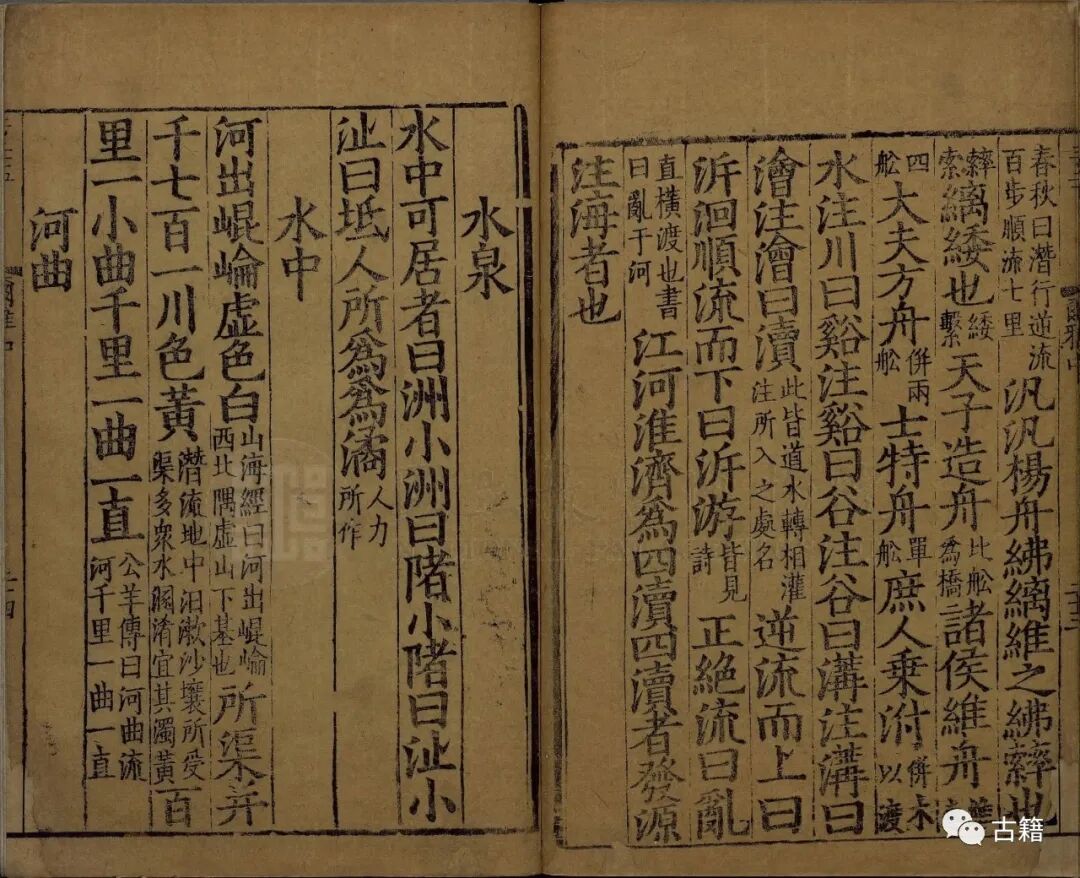 春秋曰潛行逆流百步順流七里汎汎楊舟紼縭維之紼䋁也
䋁索縭緌也緌繫天子造舟比舩爲橋諸侯維舟維
四舩大夫方舟併兩舩士特舟單舩庶人乘泭併木以渡
水注川曰谿注谿曰谷注谷曰溝注溝曰
澮注澮曰瀆此皆道水轉相灌注所入之處名逆流而上曰
泝洄順流而下曰泝游皆見詩正絕流曰亂
直橫渡也書曰亂于河江河淮濟爲四瀆四瀆者發源
注海者也
水泉
水中可居者曰洲小洲曰陼小陼曰沚小
沚曰坻人所爲爲潏人力所作
水中
河出崐崘虛色白山海經曰河出崐崘西北隅虛山下基也所渠并
千七百一川色黃潛流地中汨漱沙壤所受渠多衆水溷淆宜其濁黃百
里一小曲千里一曲一直公羊傳曰河曲流河千里一曲一直
河曲
古籍